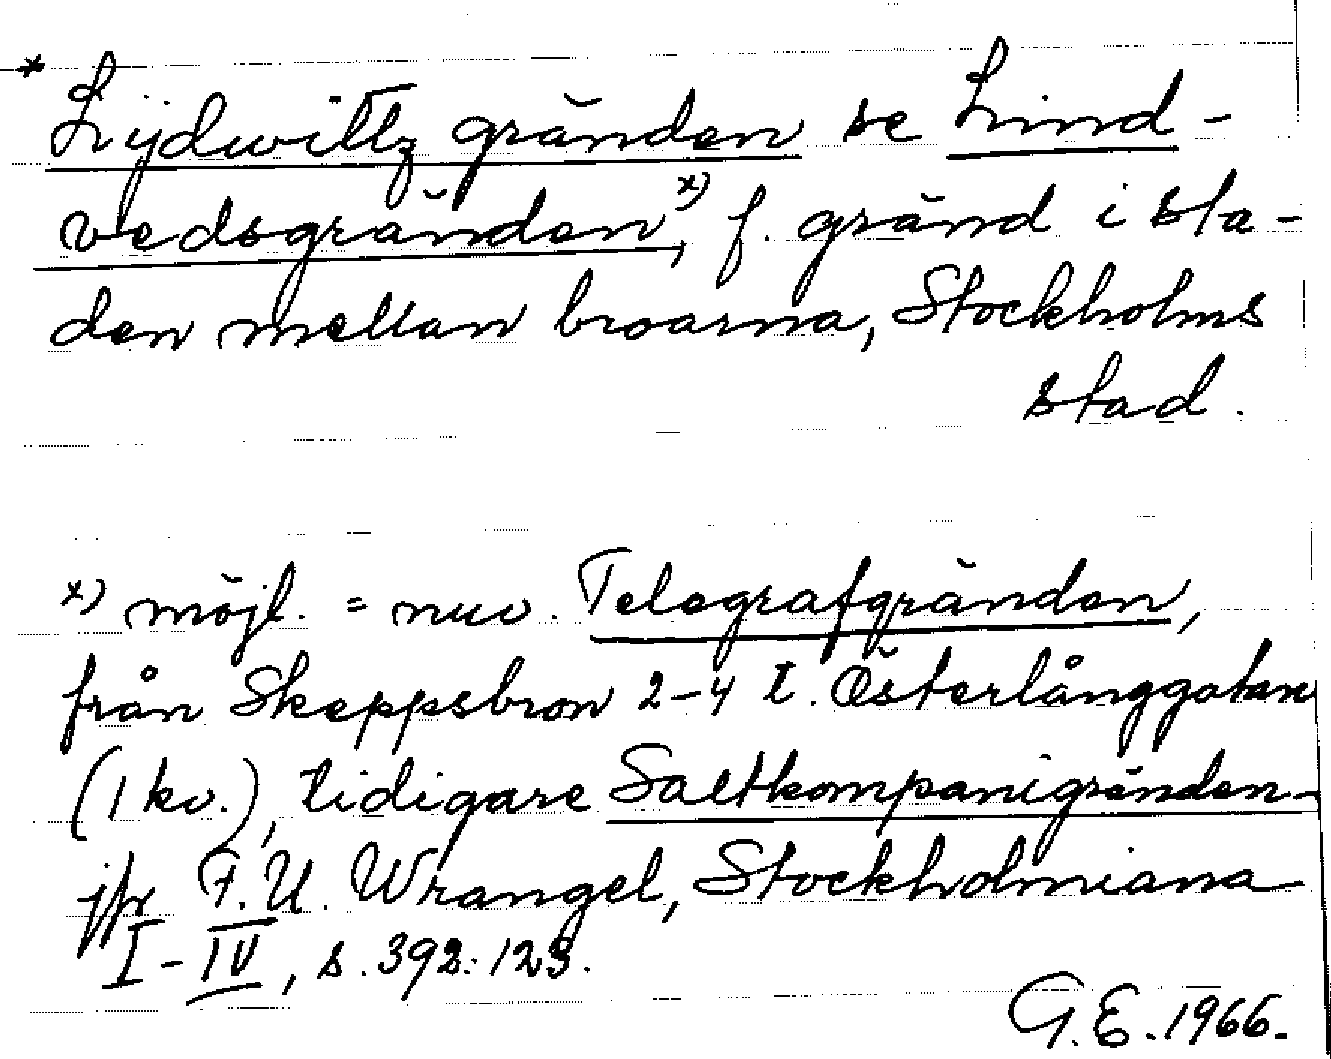 * Lijdwittz gränden se Lind-
vedsgränden,x) f. gränd i sta-
den mellan broarna, Stockholms
stad.
x) möjl. = nuv. Telegrafgränden,
från Skeppsbron 2-4 t. Österlånggatan
(1 kv.), tidigare Saltkompanigränden-
jfr F.U. Wrangel, Stockholmiana
I-IV, s. 392: 123.
G.E. 1966.